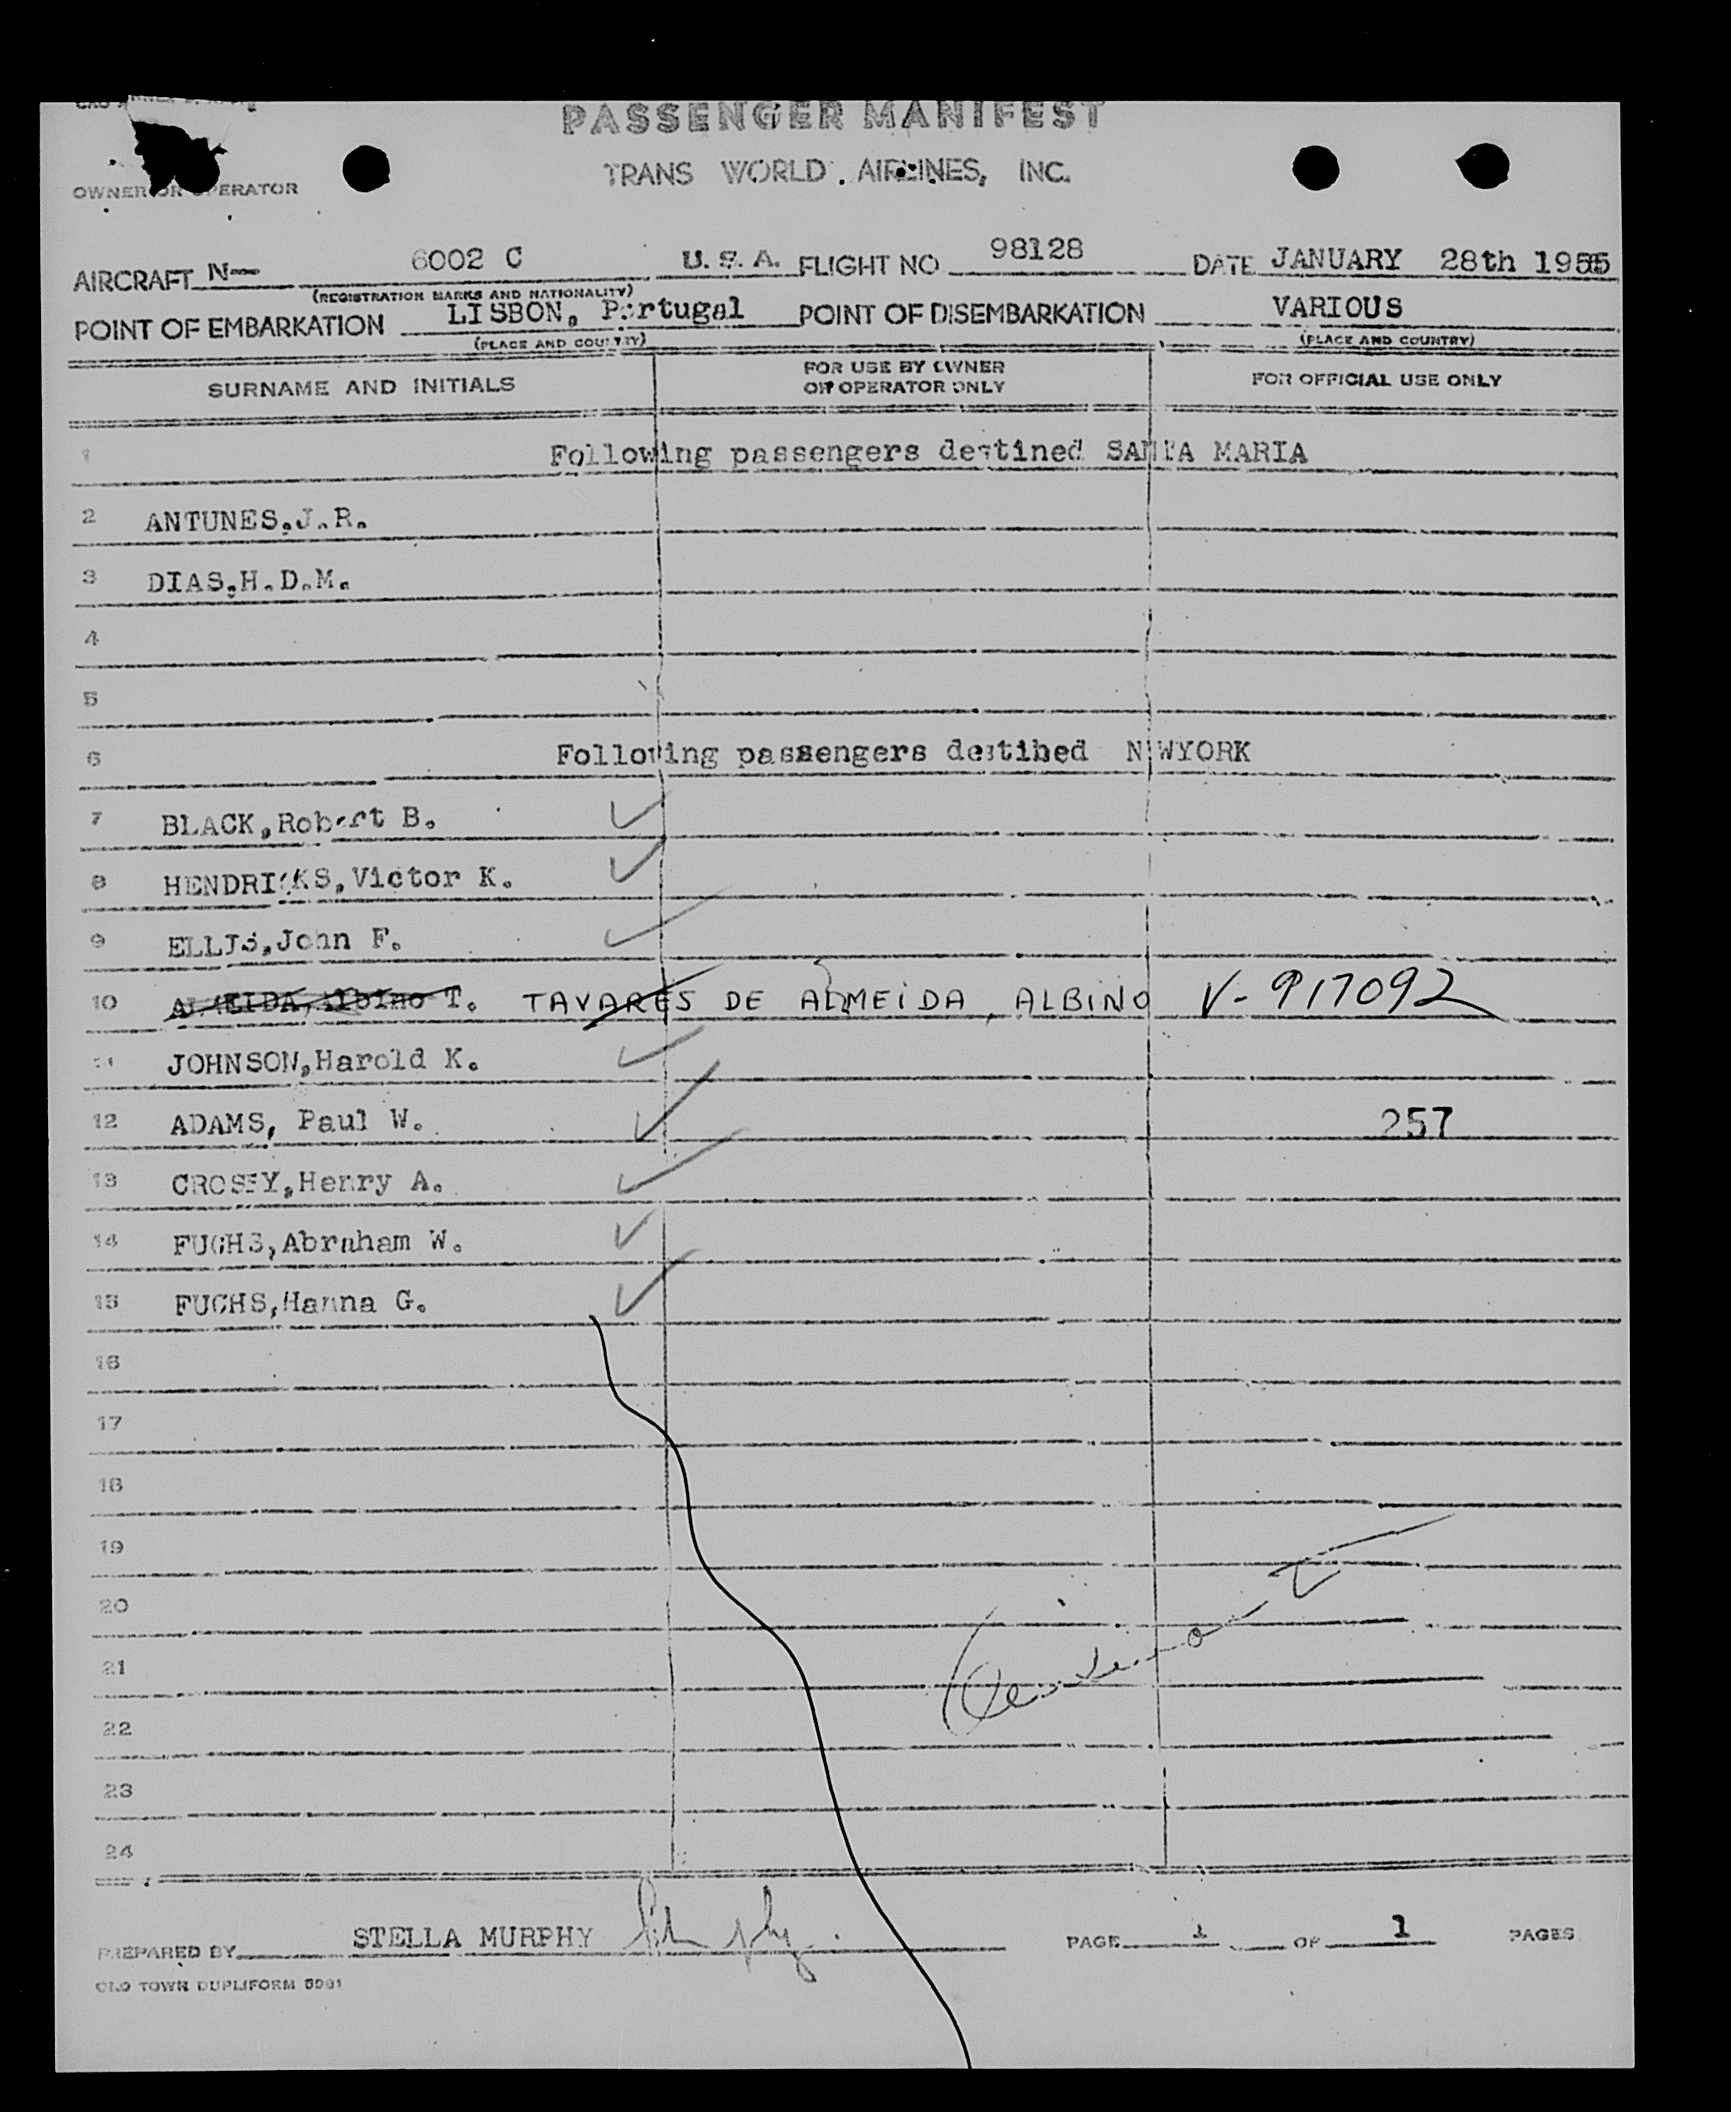 PASSENGER MANIFEST
TRANS WORLD AIRLINES, INC.
OWNER OR OPERATOR
AIRCRAFT N— 6002 C U. S. A. FLIGHT NO 98128 DATE JANUARY 28th 1955
(REGISTRATION MARKS AND NATIONALITY)
POINT OF EMBARKATION LISBON, Portugal POINT OF DISEMBARKATION VARIOUS
(PLACE AND COUNTRY) (PLACE AND COUNTRY)
SURNAME AND INITIALS FOR USE BY OWNER OR OPERATOR ONLY FOR OFFICIAL USE ONLY
1 Following passengers destined SANTA MARIA
2 ANTUNES.J.R.
3 DIAS.H.D.M.
4
5
6 Following passengers destibed NEWYORK
7 BLACK,Robert B.
8 HENDRICKS,Victor K.
9 ELLIS,John F.
10 ALMEIDA,Albino T. TAVARES DE ALMEIDA, ALBINO V-917092
11 JOHNSON,Harold K.
12 ADAMS, Paul W. 257
13 CROSBY,Henry A.
14 FUCHS,Abraham W.
15 FUCHS,Hanna G.
16
17
18
19
20
21
22
23
24
PREPARED BY STELLA MURPHY PAGE 1 OF 1 PAGES
OLD TOWN DUPLIFORM 5091